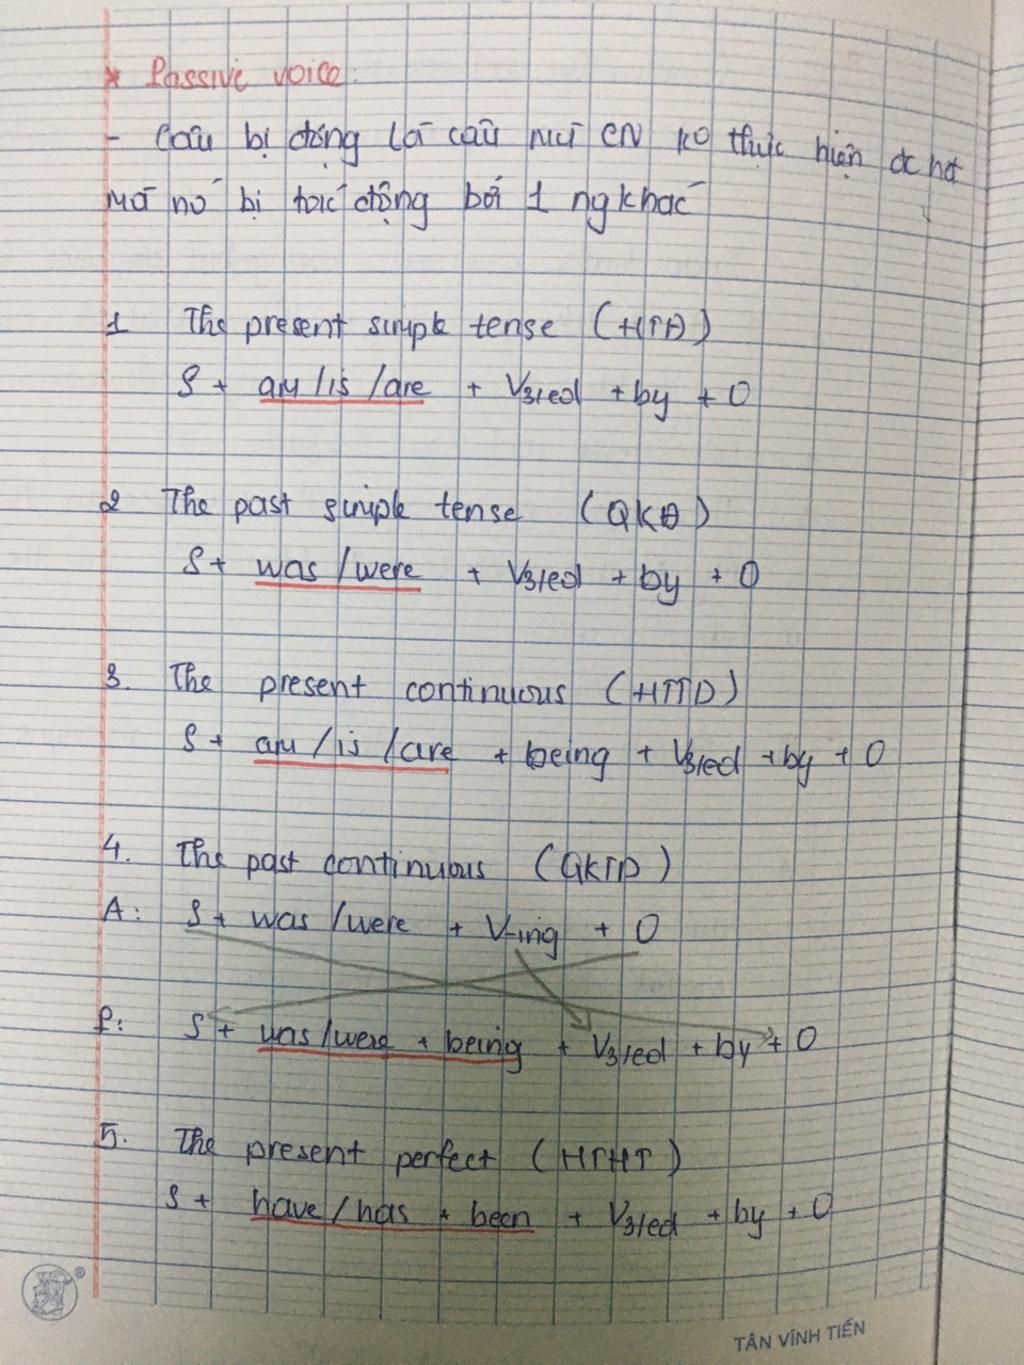 * Passive voice:
- Câu bị động là câu mà CN ko thực hiện đc hđ
mà nó bị tác động bởi 1 ng khác
1 The present simple tense (HTĐ)
S + am / is / are + V3/ed + by + O
2 The past simple tense (QKĐ)
S + was / were + V3/ed + by + O
3. The present continuous (HTTD)
S + am / is / are + being + V3/ed + by + O
4. The past continuous (QKTD)
A: S + was / were + V-ing + O
P: S + was / were + being + V3/ed + by + O
5. The present perfect (HTHT)
S + have / has + been + V3/ed + by + O
TÂN VĨNH TIẾN